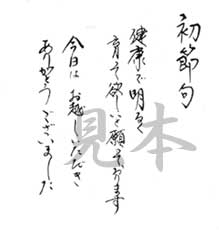 初節句
健康で明るく
育て欲しいと願っております
今日はお越しいただき
ありがとうございました
見本